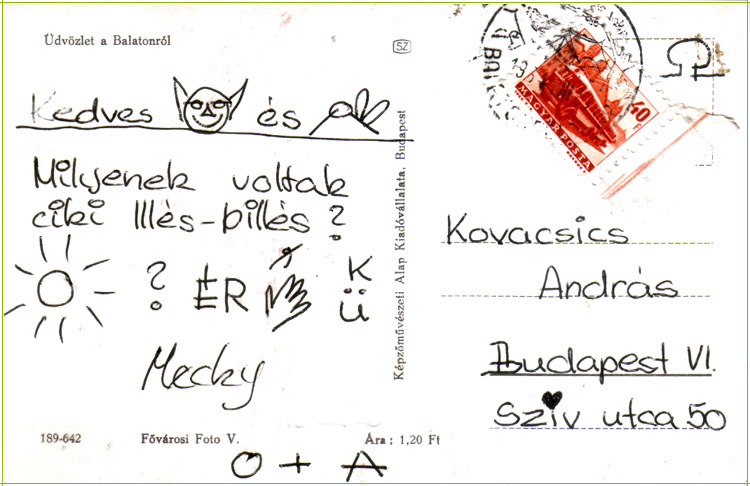 Üdvözlet a Balatonról
SZ
Kedves és
Milyenek voltak
ciki Illés-billés?
? ÉR
K
Ü
Mecky
189-642 Fővárosi Foto V. Ára: 1,20 Ft
O + A
Képzőművészeti Alap Kiadóvállalata, Budapest
MAGYAR POSTA
40
Kovacsics
András
Budapest VI.
Szív utca 50